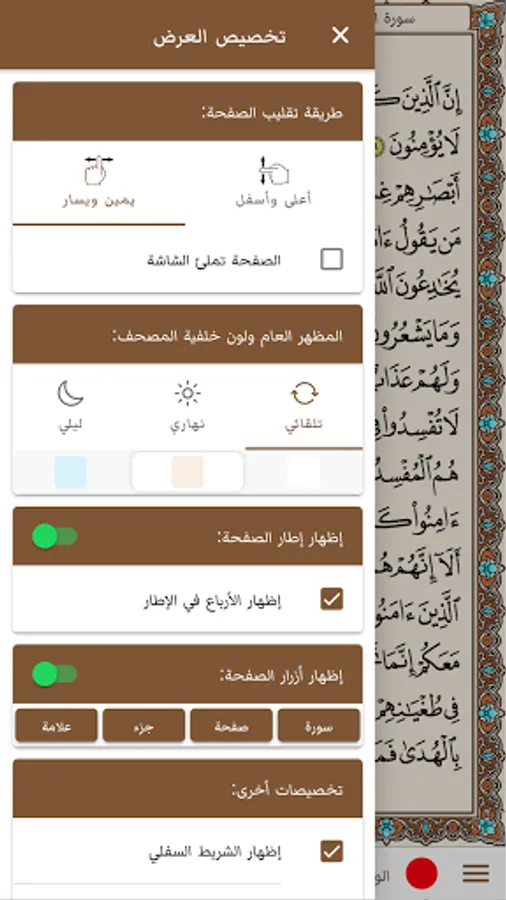 تخصيص العرض
طريقة تقليب الصفحة:
أعلى وأسفل
يمين ويسار
الصفحة تملئ الشاشة
المظهر العام ولون خلفية المصحف:
تلقائي
نهاري
ليلي
إظهار إطار الصفحة:
إظهار الأرباع في الإطار
إظهار أزرار الصفحة:
سورة
صفحة
جزء
علامة
تخصيصات أخرى:
إظهار الشريط السفلي
سورة
إِنَّ ٱلَّذِينَ
لَا يُؤْمِنُونَ
أَبْصَٰرِهِمْ
مَن يَقُولُ
يُخَٰدِعُونَ
وَمَا يَشْعُرُونَ
وَلَهُمْ عَذَابٌ
لَا تُفْسِدُوا۟
هُمُ ٱلْمُفْسِدُ
ءَامِنُوا۟
أَلَآ إِنَّهُمْ
ٱلَّذِينَ ءَامَنُوا۟
مَعَكُمْ إِنَّمَا
فِي طُغْيَٰنِهِمْ
بِٱلْهُدَىٰ فَمَا